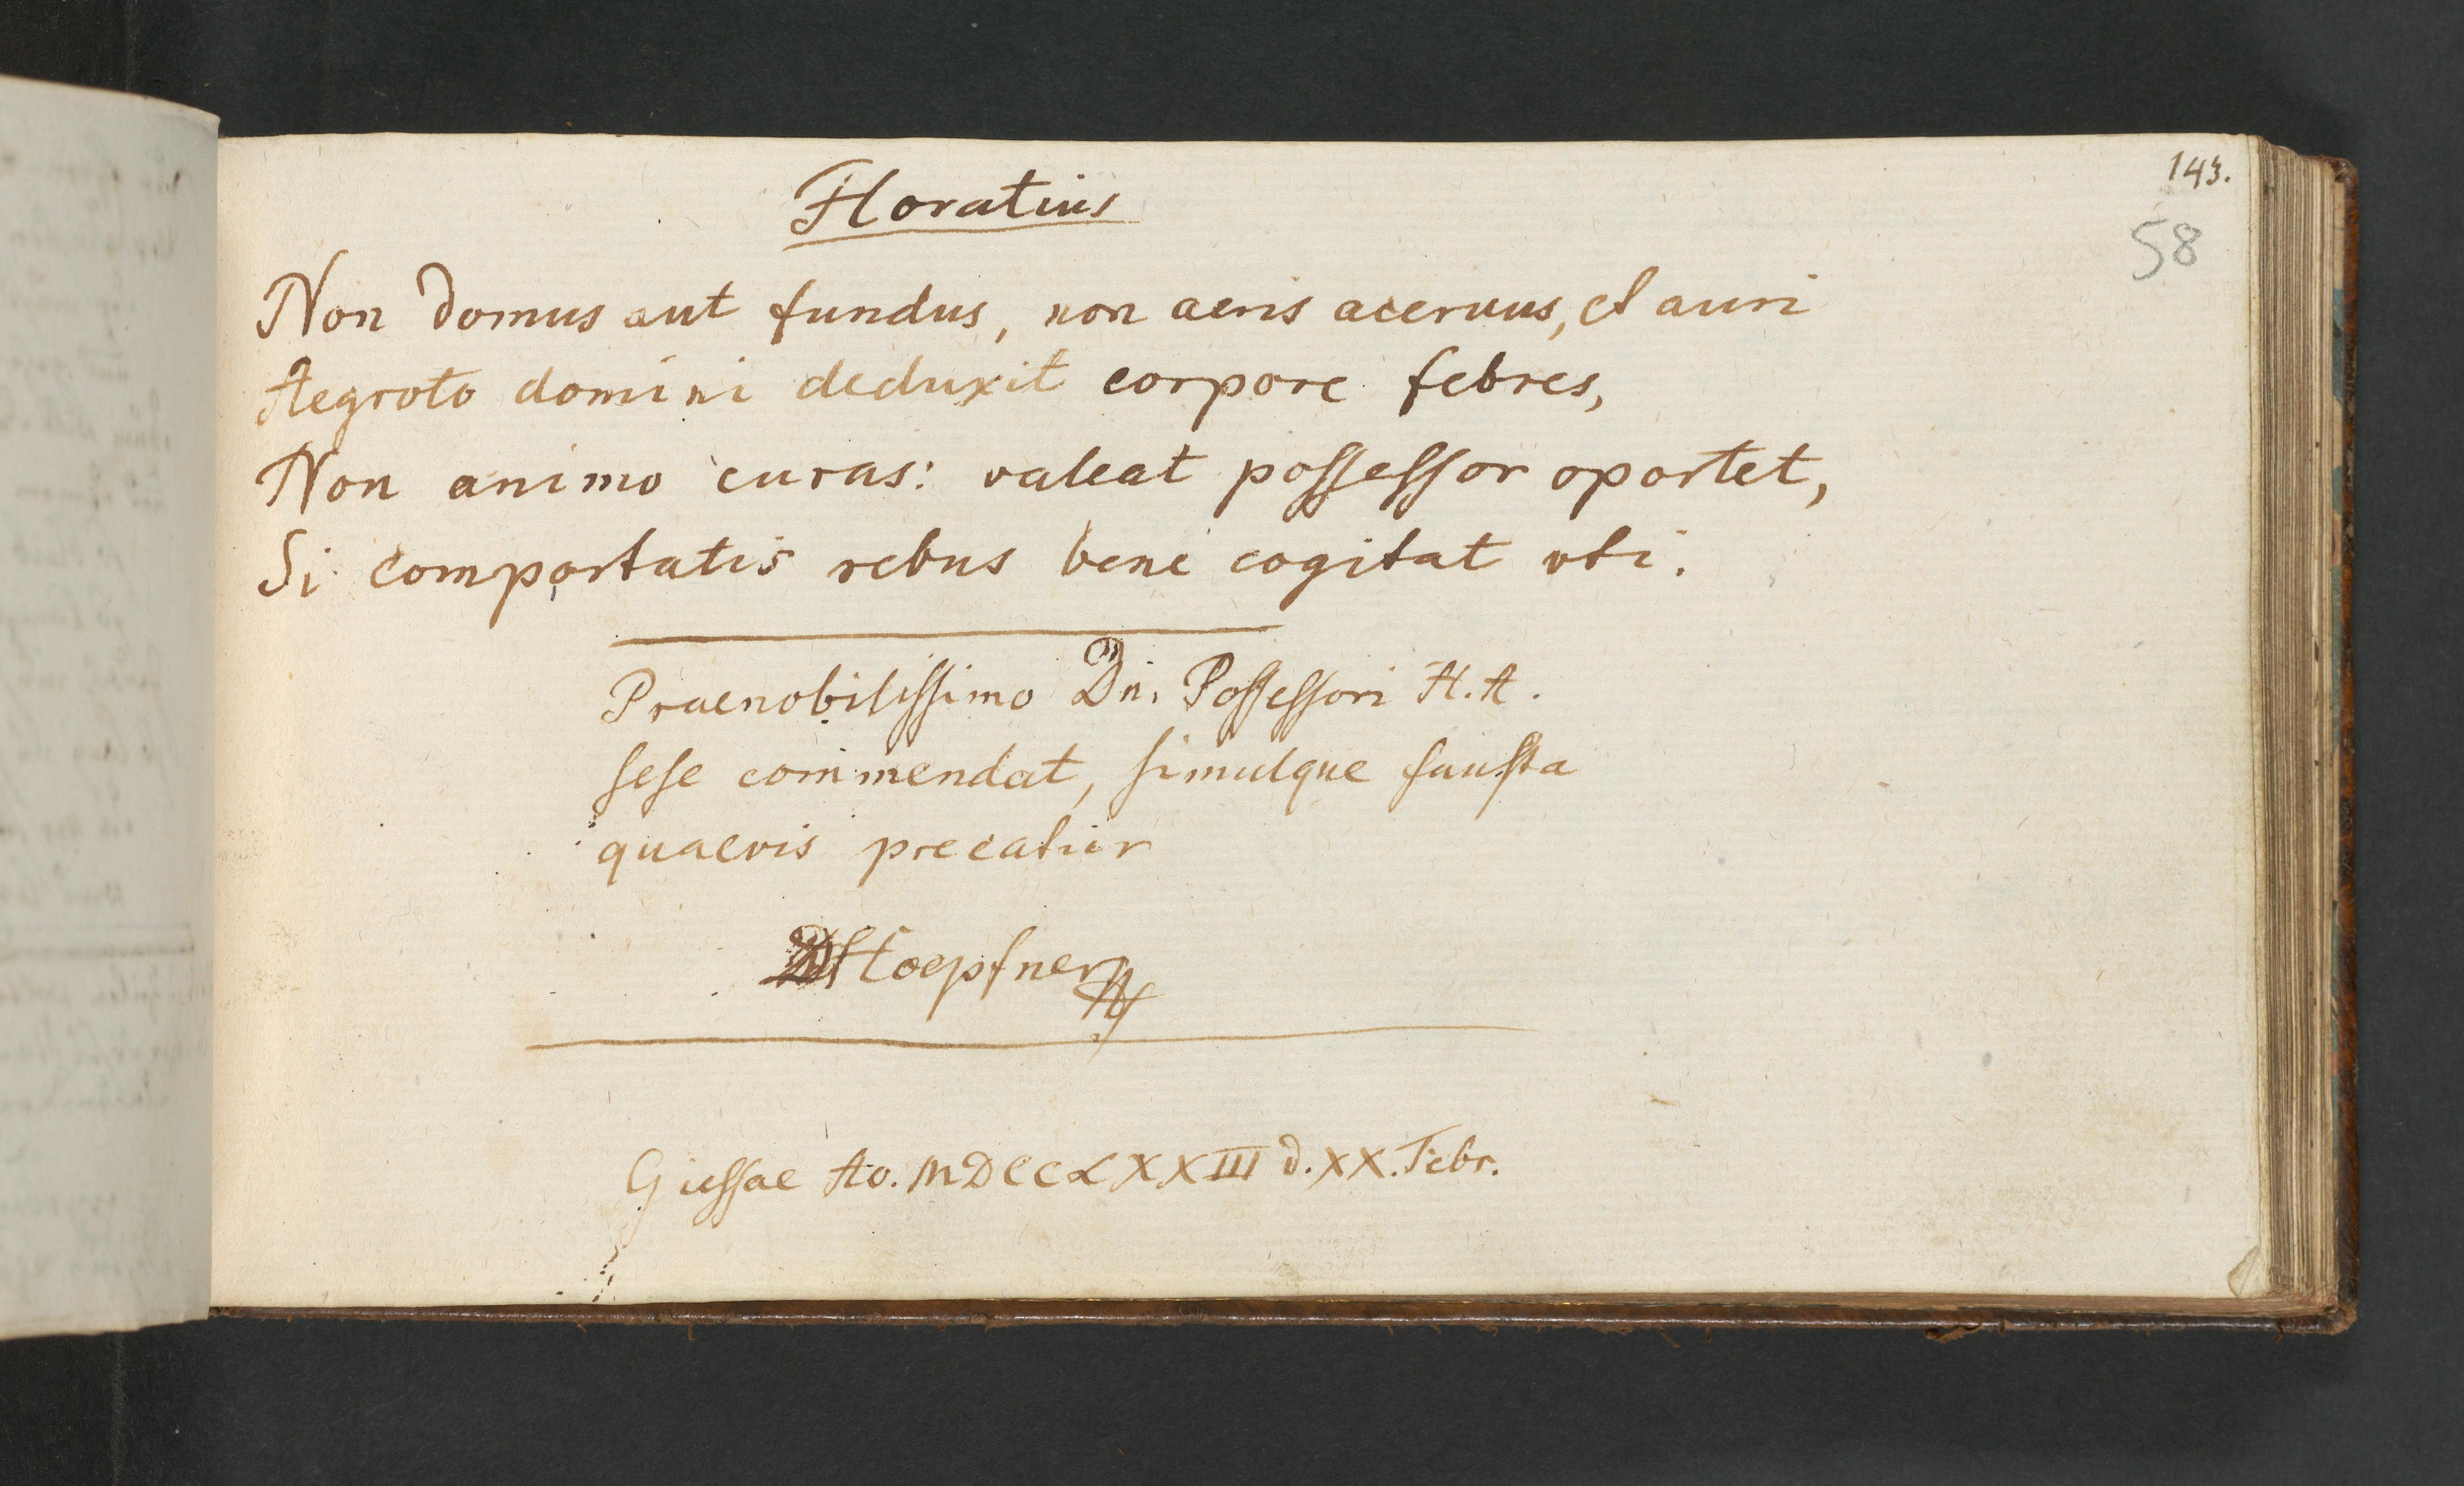 143.
58
Horatius
Non domus aut fundus, non aeris aceruus, et auri
Aegroto domini deduxit corpore febres,
Non animo curas: valeat possessor oportet,
Si comportatis rebus bene cogitat vti.
Praenobilissimo Dn. Possessori H. A.
sese commendat, simulque fausta
quaevis precatur
Hoepfner
Giessae Ao. MDCCLXXIII d. XX. Febr.